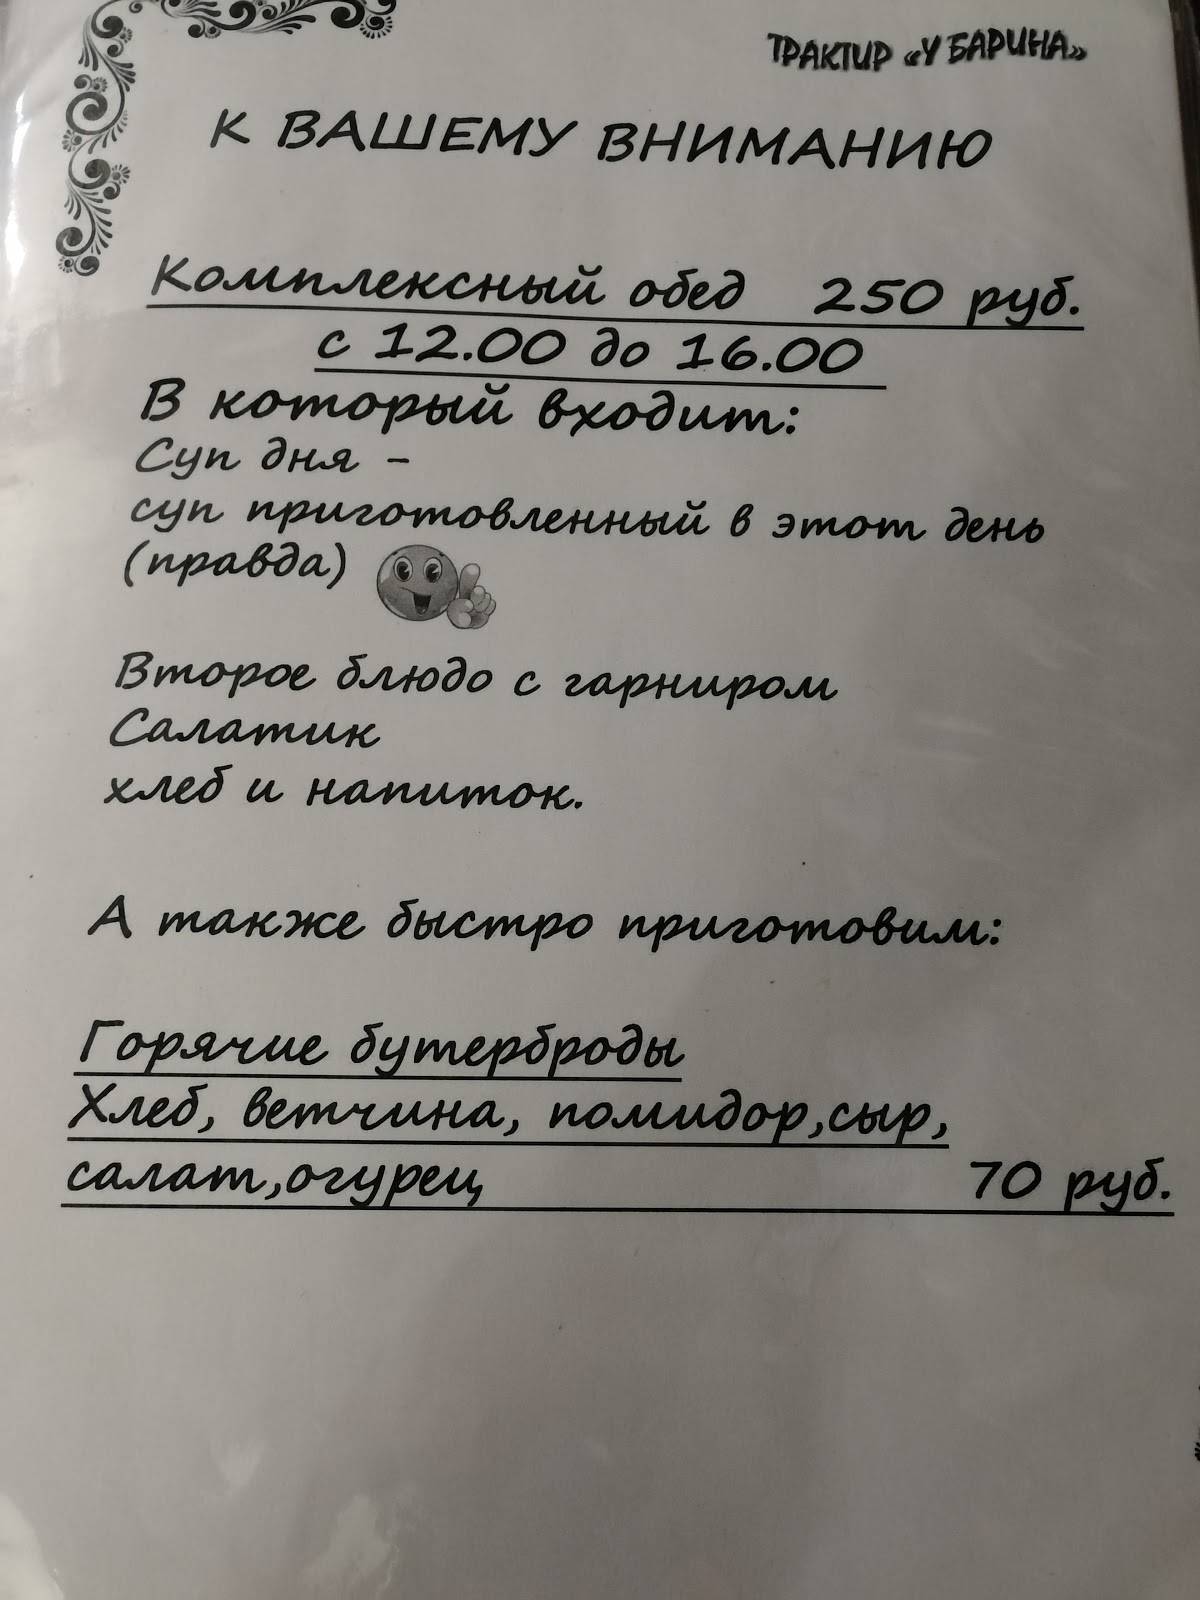 ТРАКТИР «У БАРИНА»
К ВАШЕМУ ВНИМАНИЮ
Комплексный обед 250 руб.
с 12.00 до 16.00
В который входит:
Суп дня –
суп приготовленный в этот день
(правда)
Второе блюдо с гарниром
Салатик
хлеб и напиток.
А также быстро приготовим:
Горячие бутерброды
Хлеб, ветчина, помидор,сыр,
салат,огурец 70 руб.